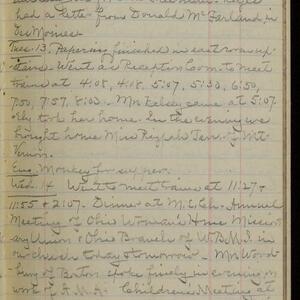 had a letter from Donald McFarland, in
Des Moines
Tues. 13. Papering finished in east room up
stairs. Went as Reception Com. to meet
trains at 4:08, 4:08, 5:07, 5:30, 6:50,
7:50, 7:57, 8:03. Mrs Kelsey came at 5:07
& took her home. In the evening we
brought home Miss Keziah
Vernon.
Eng. Monkey for supper.
Wed. 14 Went to meet trains at 11:27 &
11:55 & 2:07. Dinner at M.E. Ch. Annual
Meeting of Ohio Woman's Home Mission
ary Union & Ohio Branch of W.B.M.I. in
our church today & tomorrow. Mrs Wood
bury of Boston spoke finely in evening on
work of A.M.A. Children's Meeting at